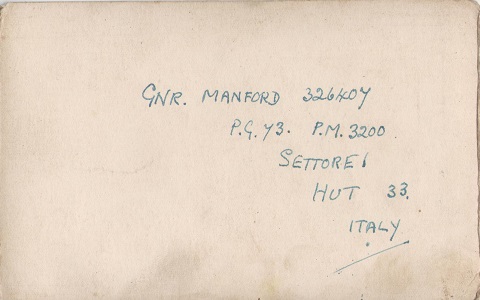 GNR. MANFORD 326407
P.G. 73. P.M. 3200
SETTORE 1
HUT 33.
ITALY